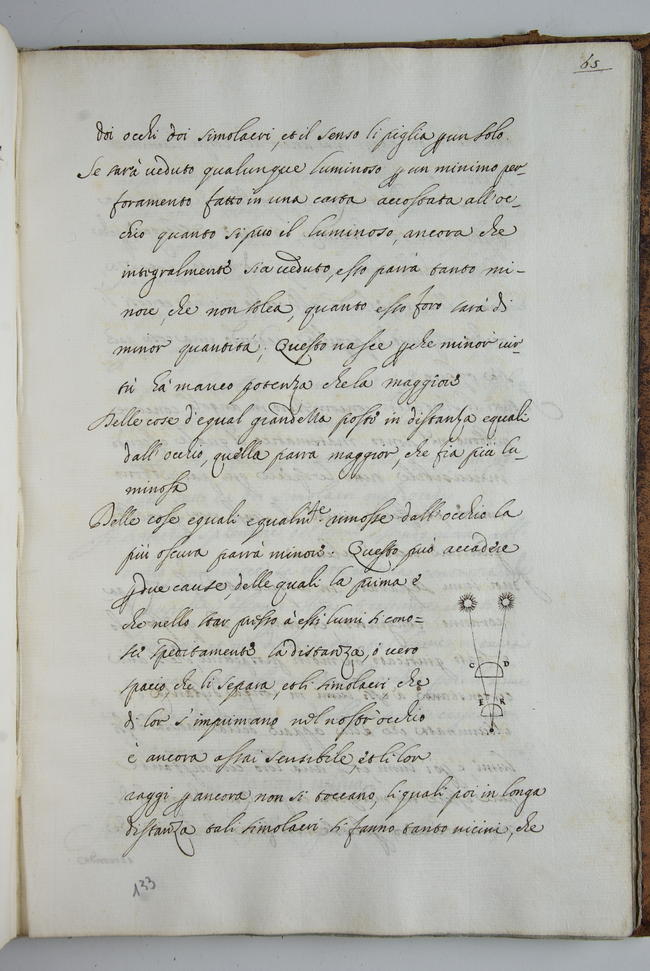 65
doi occhi doi simolacri, et il senso li piglia p un solo.
Se sarà veduto qualunque luminoso p un minimo per-
foramento fatto in una carta accostata all'oc-
chio quanto si può il luminoso, ancora che
integralmente sia veduto, esso parrà tanto mi-
nore, che non solea, quanto esso foro sarà di
minor quantità; Questo nasce pche minor vir-
tù hà manco potenza che la maggiore
Delle cose d'egual grandezza poste in distanza equali
dall'occhio, quella parrà maggior, che fia più lu-
minosa
Delle cose equali equalmte. rimosse dall'occhio la
più oscura parrà minore. Questo può accadere
p due cause, delle quali la prima è
che nello star presso à essi lumi si cono-
sce speditamente la distanza, ò vero
spacio, che li separa, et li simolacri, che
di lor s'imprimano nel nostr'occhio
è ancora assai sensibile, et li lor
raggi p ancora non si toccano, li quali poi in longa
distanza tali simolacri si fanno tanto vicini, che
C D
E
133